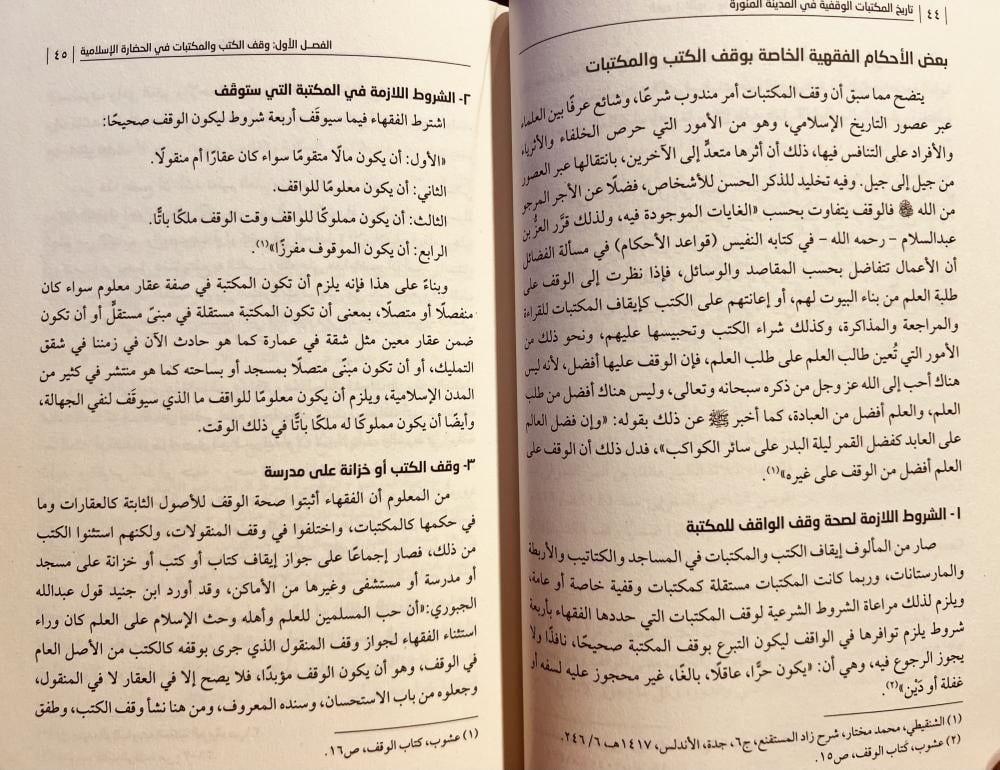 ٤٤ | تاريخ المكتبات الوقفية في المدينة المنورة
بعض الأحكام الفقهية الخاصة بوقف الكتب والمكتبات
يتضح مما سبق أن وقف المكتبات أمر مندوب شرعًا، وشائع عرفًا بين العلماء
عبر عصور التاريخ الإسلامي، وهو من الأمور التي حرص الخلفاء والأثرياء
والأفراد على التنافس فيها، ذلك أن أثرها متعدٍّ إلى الآخرين، بانتقالها عبر العصور
من جيل إلى جيل. وفيه تخليد للذكر الحسن للأشخاص، فضلًا عن الأجر المرجو
من الله ﷻ فالوقف يتفاوت بحسب «الغايات الموجودة فيه، ولذلك قرَّر العزُّ بن
عبدالسلام – رحمه الله – في كتابه النفيس (قواعد الأحكام) في مسألة الفضائل
أن الأعمال تتفاضل بحسب المقاصد والوسائل، فإذا نظرت إلى الوقف على
طلبة العلم من بناء البيوت لهم، أو إعانتهم على الكتب كإيقاف المكتبات للقراءة
والمراجعة والمذاكرة، وكذلك شراء الكتب وتحبيسها عليهم، ونحو ذلك من
الأمور التي تُعين طالب العلم على طلب العلم، فإن الوقف عليها أفضل، لأنه ليس
هناك أحب إلى الله عز وجل من ذكره سبحانه وتعالى، وليس هناك أفضل من طلب
العلم، والعلم أفضل من العبادة، كما أخبر ﷺ عن ذلك بقوله: «وإن فضل العالم
على العابد كفضل القمر ليلة البدر على سائر الكواكب»، فدل ذلك أن الوقف على
العلم أفضل من الوقف على غيره»(١).
١- الشروط اللازمة لصحة وقف الواقف للمكتبة
صار من المألوف إيقاف الكتب والمكتبات في المساجد والكتاتيب والأربطة
والمارستانات، وربما كانت المكتبات مستقلة كمكتبات وقفية خاصة أو عامة،
ويلزم لذلك مراعاة الشروط الشرعية لوقف المكتبات التي حددها الفقهاء بأربعة
شروط يلزم توافرها في الواقف ليكون التبرع بوقف المكتبة صحيحًا، نافذًا ولا
يجوز الرجوع فيه، وهي أن: «يكون حرًّا، عاقلًا، بالغًا، غير محجوز عليه لسفه أو
غفلة أو دَيْن»(٢).
(١) الشنقيطي، محمد مختار، شرح زاد المستقنع، ج٦، جدة، الأندلس، ١٤١٧هـ، ٦/ ٢٤٦.
(٢) عشوب، كتاب الوقف، ص١٥.
الفصل الأول: وقف الكتب والمكتبات في الحضارة الإسلامية | ٤٥ |
٢- الشروط اللازمة في المكتبة التي ستوقَف
اشترط الفقهاء فيما سيوقَف أربعة شروط ليكون الوقف صحيحًا:
«الأول: أن يكون مالًا متقومًا سواء كان عقارًا أم منقولًا.
الثاني: أن يكون معلومًا للواقف.
الثالث: أن يكون مملوكًا للواقف وقت الوقف ملكًا باتًّا.
الرابع: أن يكون الموقوف مفرزًا»(١).
وبناءً على هذا فإنه يلزم أن تكون المكتبة في صفة عقار معلوم سواء كان
منفصلًا أو متصلًا، بمعنى أن تكون المكتبة مستقلة في مبنىً مستقلٍّ أو أن تكون
ضمن عقار معين مثل شقة في عمارة كما هو حادث الآن في زمننا في شقق
التمليك، أو أن تكون مبنًى متصلًا بمسجد أو بساحته كما هو منتشر في كثير من
المدن الإسلامية، ويلزم أن يكون معلومًا للواقف ما الذي سيوقَف لنفي الجهالة،
وأيضًا أن يكون مملوكًا له ملكًا باتًّا في ذلك الوقت.
٣- وقف الكتب أو خزانة على مدرسة
من المعلوم أن الفقهاء أثبتوا صحة الوقف للأصول الثابتة كالعقارات وما
في حكمها كالمكتبات، واختلفوا في وقف المنقولات، ولكنهم استثنوا الكتب
من ذلك، فصار إجماعًا على جواز إيقاف كتاب أو كتب أو خزانة على مسجد
أو مدرسة أو مستشفى وغيرها من الأماكن، وقد أورد ابن جنيد قول عبدالله
الجبوري:«أن حب المسلمين للعلم وأهله وحث الإسلام على العلم كان وراء
استثناء الفقهاء لجواز وقف المنقول الذي جرى بوقفه كالكتب من الأصل العام
في الوقف، وهو أن يكون الوقف مؤبدًا، فلا يصح إلا في العقار لا في المنقول،
وجعلوه من باب الاستحسان، وسنده المعروف، ومن هنا نشأ وقف الكتب، وطفق
(١) عشوب، كتاب الوقف، ص١٦.